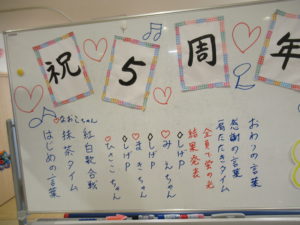 祝5周年
はじめの言葉
抹茶タイム
なおこちゃん
紅白歌合戦
♡ひさこちゃん
◇しげP
♡まきちゃん
◇しげP
♡みえちゃん
◇しげP
結果発表
全員で蛍の光
肩たたきタイム
感謝の言葉
おわりの言葉